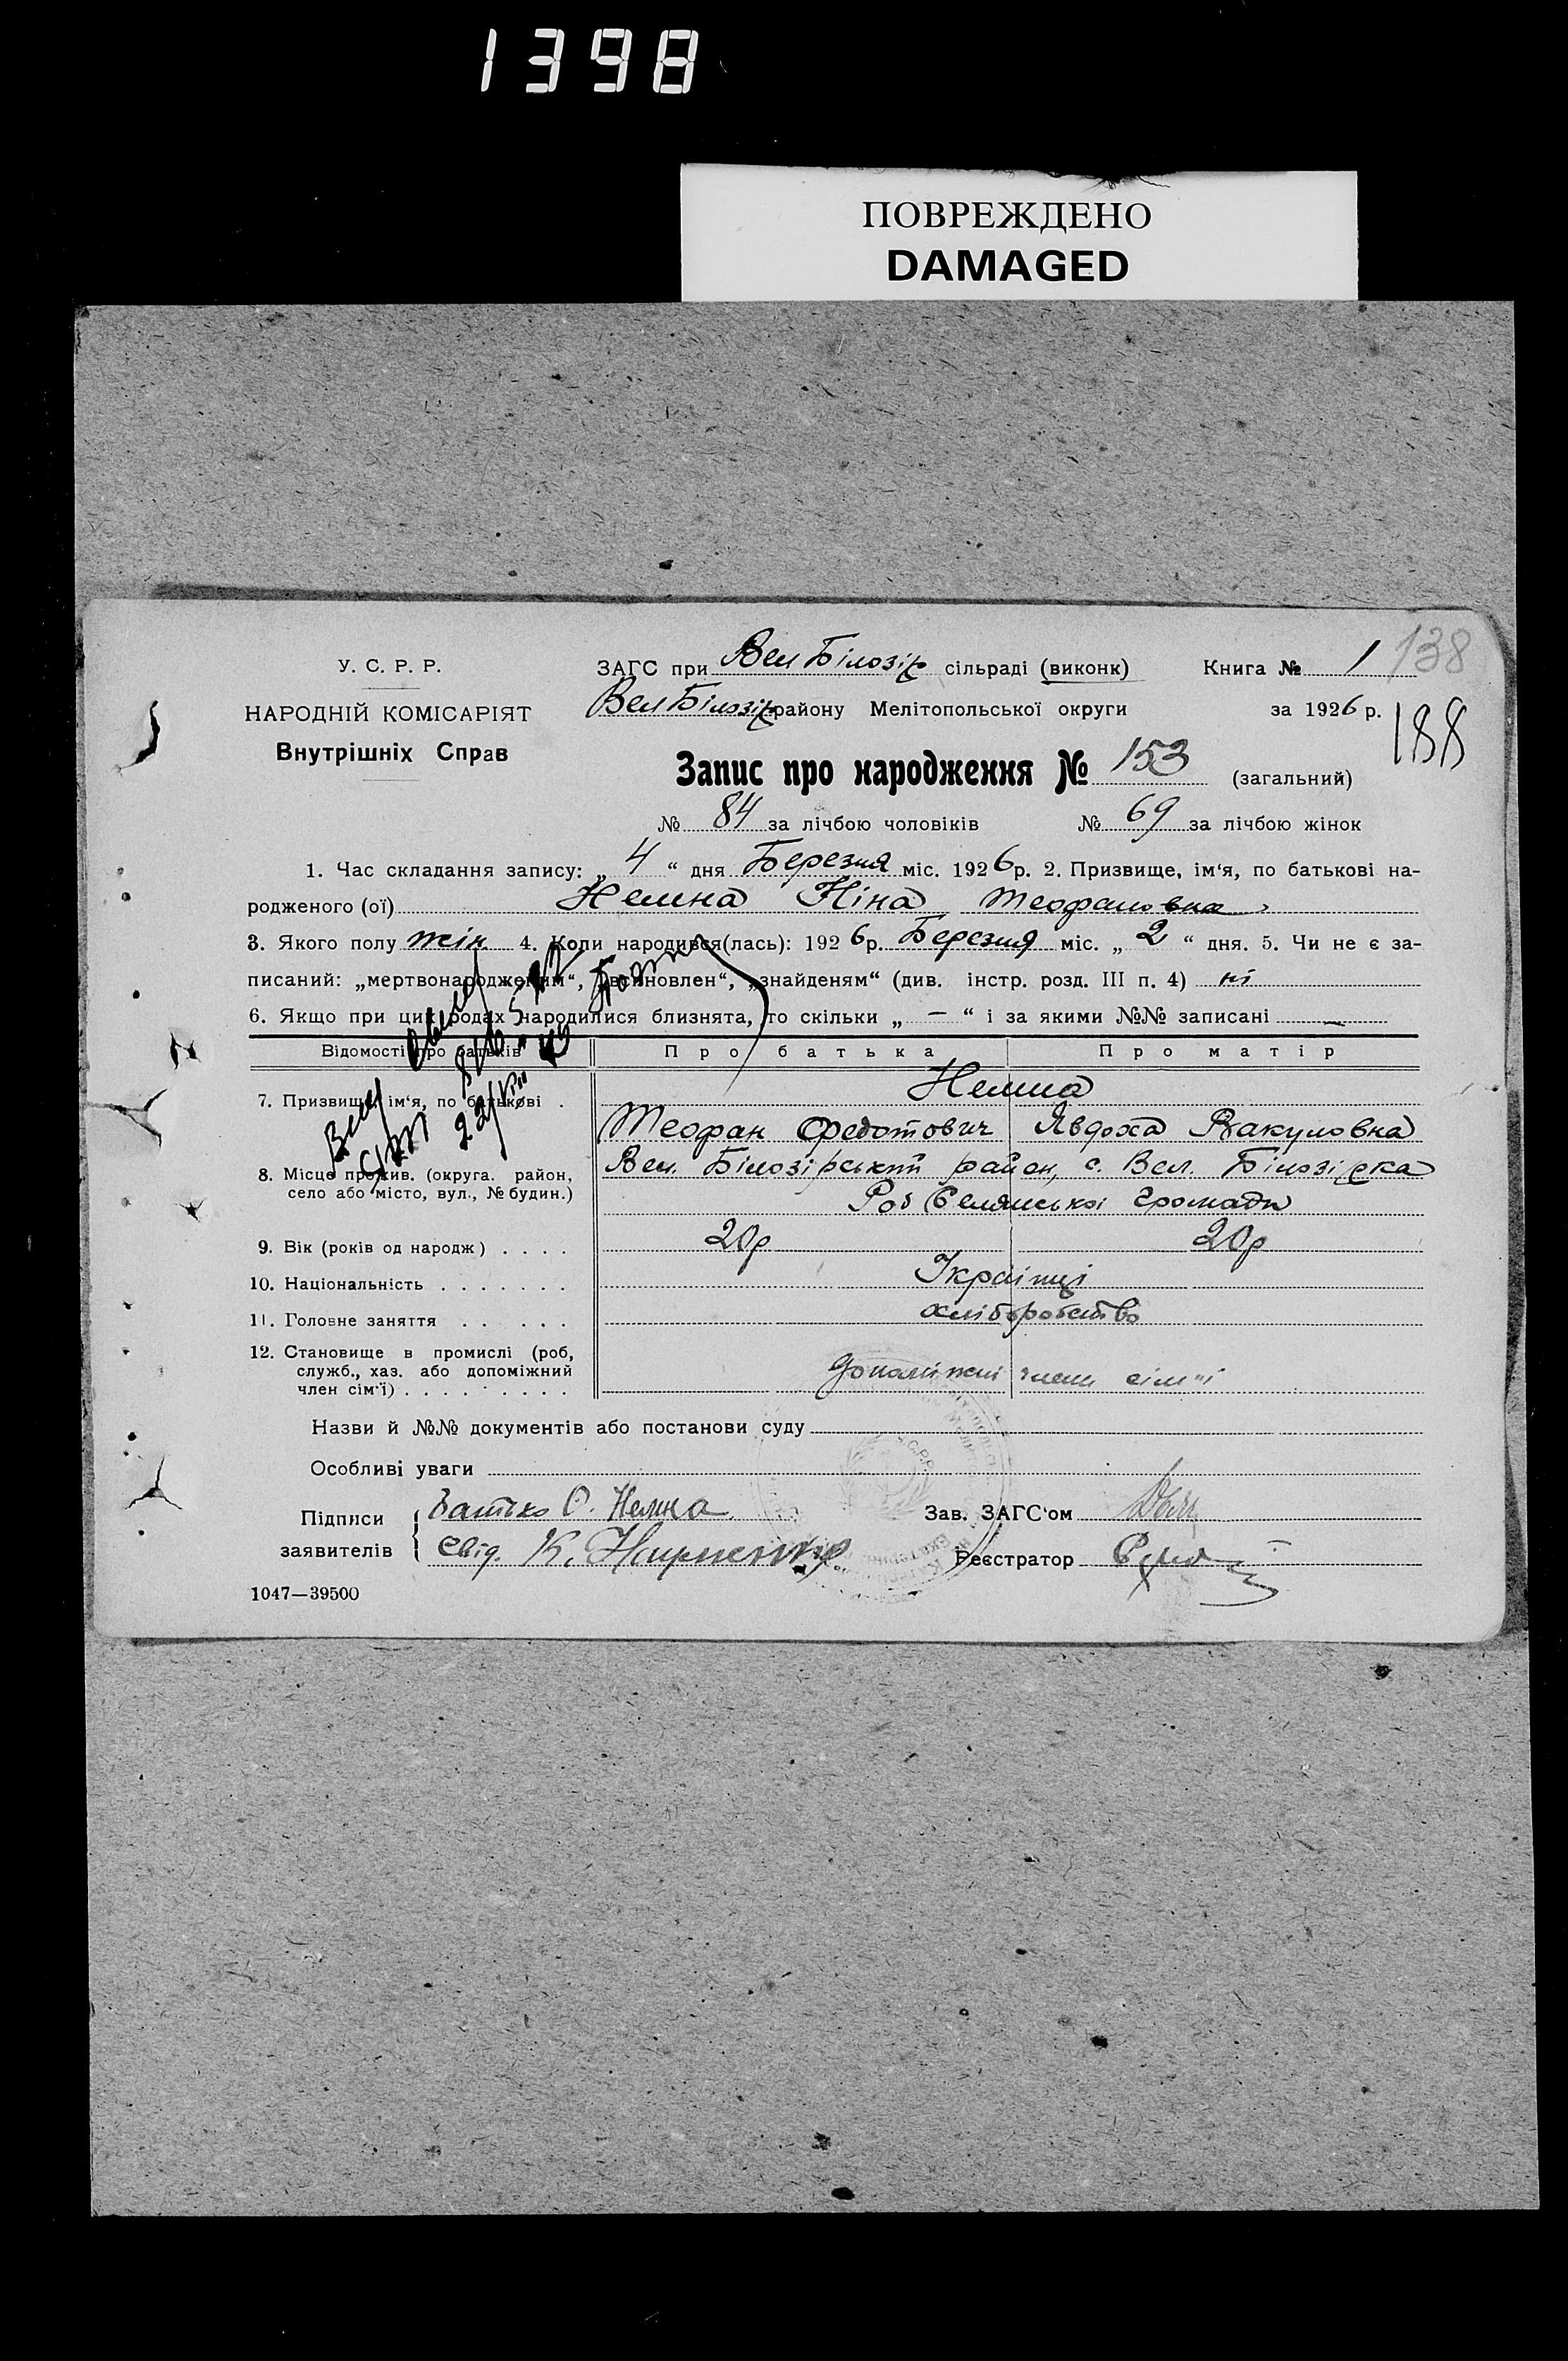 1398
ПОВРЕЖДЕНО
DAMAGED
138
У. С. Р. Р.
НАРОДНІЙ КОМІСАРІЯТ
Внутрішніх Справ
ЗАГС при Вел Білозір сільраді (виконк) Книга № 1
Вел Білозір району Мелітопольської округи за 1926 р.
188
Запис про народження № 153 (загальний)
№ 84 за лічбою чоловіків № 69 за лічбою жінок
1. Час складання запису: „ 4 “ дня Березня міс. 1926 р. 2. Призвище, ім‘я, по батькові на-
родженого (ої) Немна Ніна Теофановна
3. Якого полу жін 4. Коли народився(лась): 1926 р. Березня міс. „ 2 “ дня. 5. Чи не є за-
писаний: „мертвонародженим“, „всиновлен“, „знайденям“ (див. інстр. розд. III п. 4) ні
6. Якщо при цих родах народилися близнята, то скільки „ — “ і за якими №№ записані —
Відомості про батьків Про батька Про матір
7. Призвище, ім‘я, по батькові . Немна
Теофан Федотович Явдоха Вакуловна
8. Місце прожив. (округа. район,
село або місто, вул., № будин.)
Вел. Білозірський район, с. Вел. Білозірка
Роб Селянської громади
9. Вік (років од народж) . . . . 20р 20р
10. Національність . . . . . . . Українці
11. Головне заняття . . . . . . хліборобство
12. Становище в промислі (роб,
служб., хаз. або допоміжний
член сім‘ї) . . . . . . . . .
допоміжні члени сім"ї
Назви й №№ документів або постанови суду
Особливі уваги
Підписи
заявителів
Батько Ф. Немна
Свід. К.
Зав. ЗАГС‘ом
Реєстратор
1047—39500